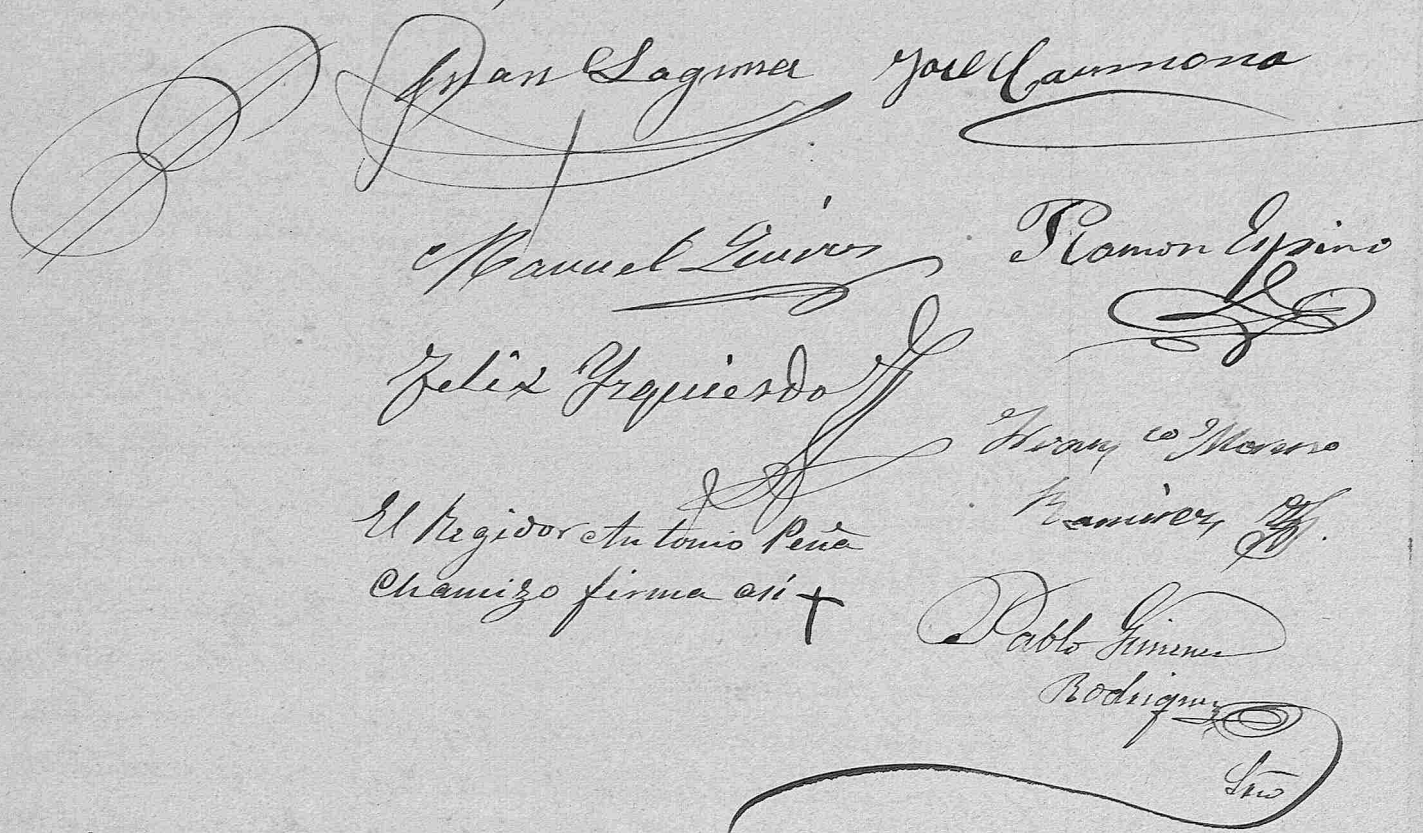 Juan Laguna José Carmona
Manuel Ramon Espino
Felix Yzquierdo
Franco Moreno
Ramirez
El Regidor Antonio Peña
Chamizo firma así +
Pablo Gimenez
Rodriguez
Srio